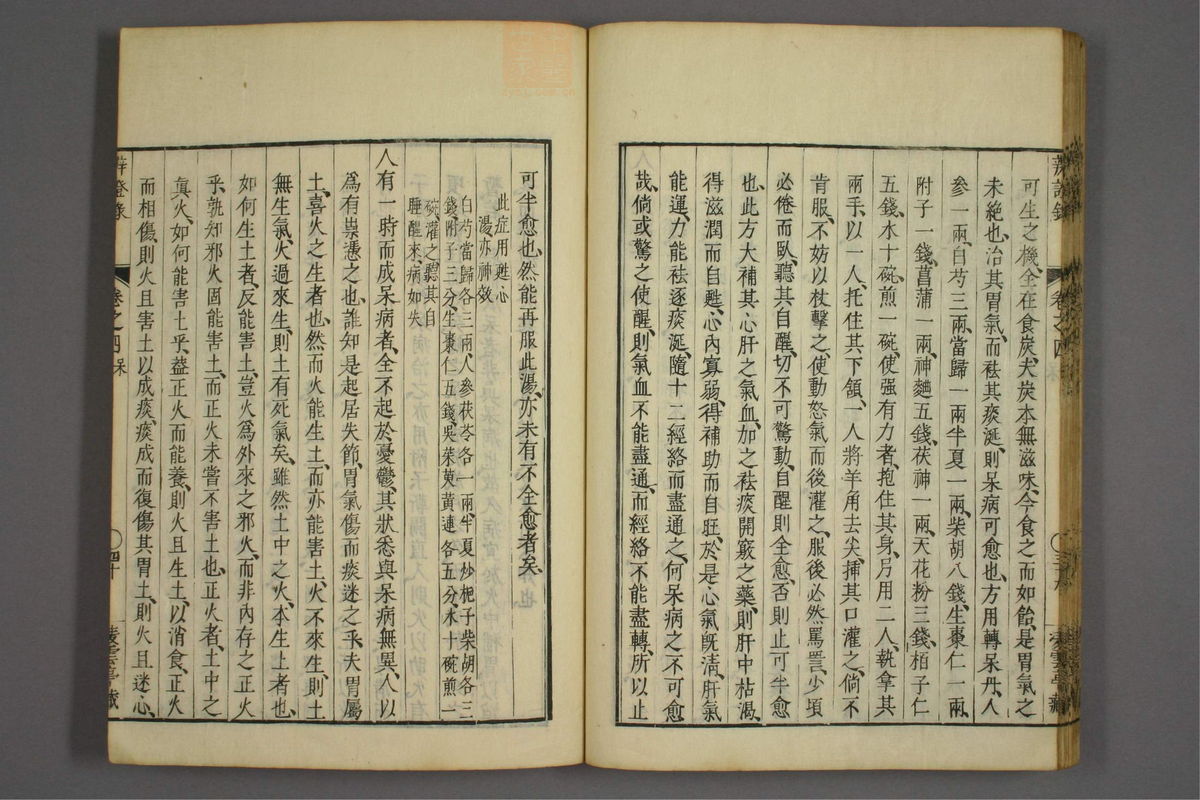 可生之機、全在食炭、夫炭本無滋味、今食之而如飴、是胃氣之
未絶也、治其胃氣、而祛其痰涎、則呆病可愈也、方用轉呆丹、人
參一兩、白芍三兩、當歸一兩半夏一兩、柴胡八錢、生棗仁一兩、
附子一錢、菖蒲一兩、神麯五錢、茯神一兩、天花粉三錢、栢子仁
五錢、水十碗、煎一碗、使强有力者、抱住其身、另用二人、執拿其
兩手、以一人、托住其下頷、一人將羊角去尖、揷其口灌之、倘不
肯服、不妨以杖擊之、使動怒氣而後灌之、服後必然罵詈、少頃
必倦而臥、聽其自醒、切不可驚動、自醒則全愈、否則止可半愈
也、此方大補其心肝之氣血、加之祛痰開竅之藥、則肝中枯渴、
得滋潤而自甦、心內寡弱、得補助而自旺、於是心氣旣淸、肝氣
能運、力能祛逐痰涎、隨十二經絡而盡通之、何呆病之不可愈
哉、倘或驚之使醒、則氣血不能盡通、而經絡不能盡轉、所以止
辨證錄
卷之四
呆
可半愈也、然能再服此湯、亦未有不全愈者矣、
此症用甦心
湯亦神效
白芍當歸各三兩人參茯苓各一兩半夏炒梔子柴胡各三
錢附子三分生棗仁五錢、吳茱萸黃連各五分、水十碗煎一
碗、灌之聽其自
睡醒來、病如失
人有一時而成呆病者、全不起於憂鬱、其狀悉與呆病無異、人以
爲有祟憑之也、誰知是起居失節、胃氣傷而痰迷之乎、夫胃屬
土、喜火之生者也、然而火能生土、而亦能害土、火不來生、則土
無生氣、火過來生、則土有死氣矣、雖然土中之火、本生土者也、
如何生土者、反能害土、豈火爲外來之邪火、而非內存之正火
乎、孰知邪火固能害土、而正火未嘗不害土也、正火者、土中之
眞火、如何能害土乎、葢正火而能養、則火且生土、以消食、正火
而相傷、則火且害土以成痰、痰成而復傷其胃土、則火且迷心、
卷之四
呆
四十